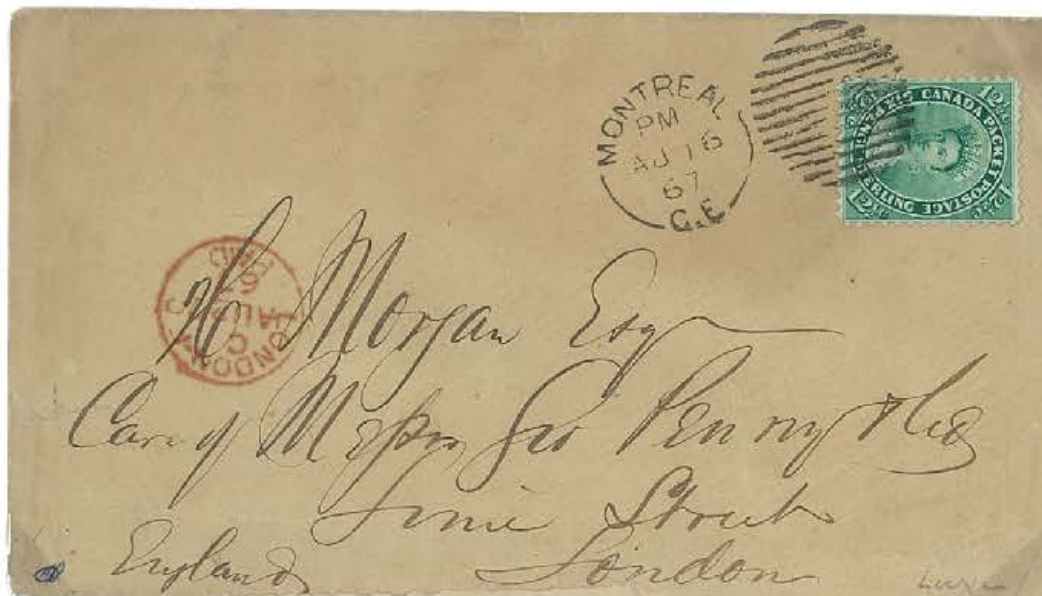 MONTREAL
PM
AU 16
67
C.E
CANADA PACKET POSTAGE
SIX PENCE STERLING
12½ c
LONDON
C
AU
67
PAID
H Morgan Esq
Care of Messrs Geo Penny & Co
Lime Street
London
England